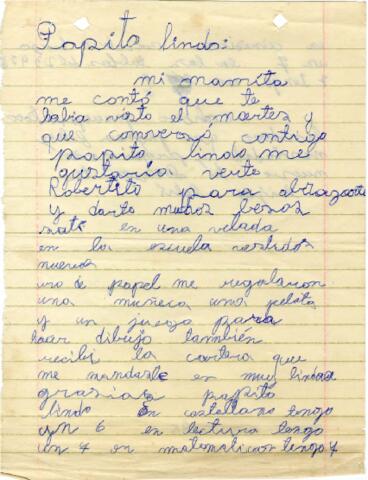 Papito lindo:
mi mamita
me contó que te
habia visto el martes y
que conversó contigo
papito lindo me
gustaría verte
Robertito para abrazarte
y darte muños besos
sati en una velada
en la escuela vestidos
nuevos
uno de papel me regalaron
una muñeca una pelota
y un juego para
hacer dibujo también
recibi la cartera que
me mandaste en muy linda
gracias papito
lindo en castellano tengo
un 6 en lectura tengo
un 7 en matematicas tengo 7